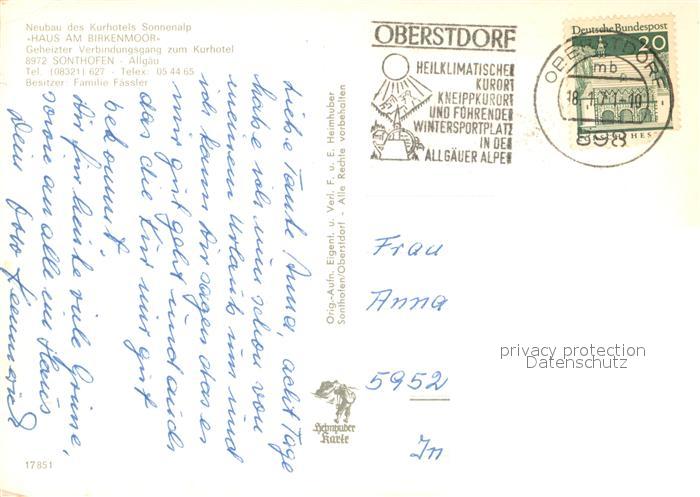 Neubau des Kurhotels Sonnenalp
»HAUS AM BIRKENMOOR«
Geheizter Verbindungsgang zum Kurhotel
8972 SONTHOFEN - Allgäu
Tel. (08321) 627 - Telex: 05 44 65
Besitzer Familie Fässler
OBERSTDORF
HEILKLIMATISCHER
KURORT
KNEIPPKURORT
UND FÜHRENDER
WINTERSPORTPLATZ
IN DEN
ALLGÄUER ALPEN
Deutsche Bundespost
20
LORSCH/HESSEN
OBERSTDORF
mb
18.-7.71-10
898
Liebe Tante Anna, acht Tage
habe ich nun schon von
meinem Urlaub um und
ich kann Dir sagen das es
mir gut geht und auch
das die Kur mir gut
bekommt
Dir für heute viele Grüsse,
sowie an alle im Haus
Dein Otto
Orig.-Aufn. Eigent. u. Verl. F. u. E. Heimhuber
Sonthofen/Oberstdorf - Alle Rechte vorbehalten
Heimhuber
Karte
Frau
Anna
5952
In
privacy protection
Datenschutz
17851